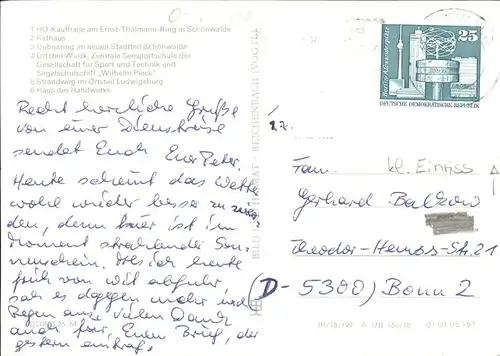 1 HO-Kaufhalle am Ernst-Thälmann-Ring in Schönwalde
2 Rathaus
3 Dubnaring im neuen Stadtteil Schönwalde
4 Ortsteil Wieck, Zentrale Seesportschule der
Gesellschaft für Sport und Technik und
Segelschulschiff „Wilhelm Pieck"
5 Strandweg im Ortsteil Ludwigsburg
6 Haus des Handwerks
Recht herzliche Grüße
von einer Dienstreise
sendet Euch Euer Peter.
Heute scheint das Wetter
wohl wieder besser zu wer-
den, denn hier ist im
Moment strahlender Son-
nenschein. Als ich heute
früh von wit abfuhr,
sah es dagegen mehr nach
Regen aus. Vielen Dank
auch für Euren Brief, der
gestern eintraf.
BILD UND HEIMAT REICHENBACH (VOGTL)
Berlin-Alexanderplatz
25
DEUTSCHE DEMOKRATISCHE REPUBLIK
kl. Einriss
Fam.
Gerhard
Theodor-Heuss-Str. 21
(D-5300) Bonn 2
01 03 05 181